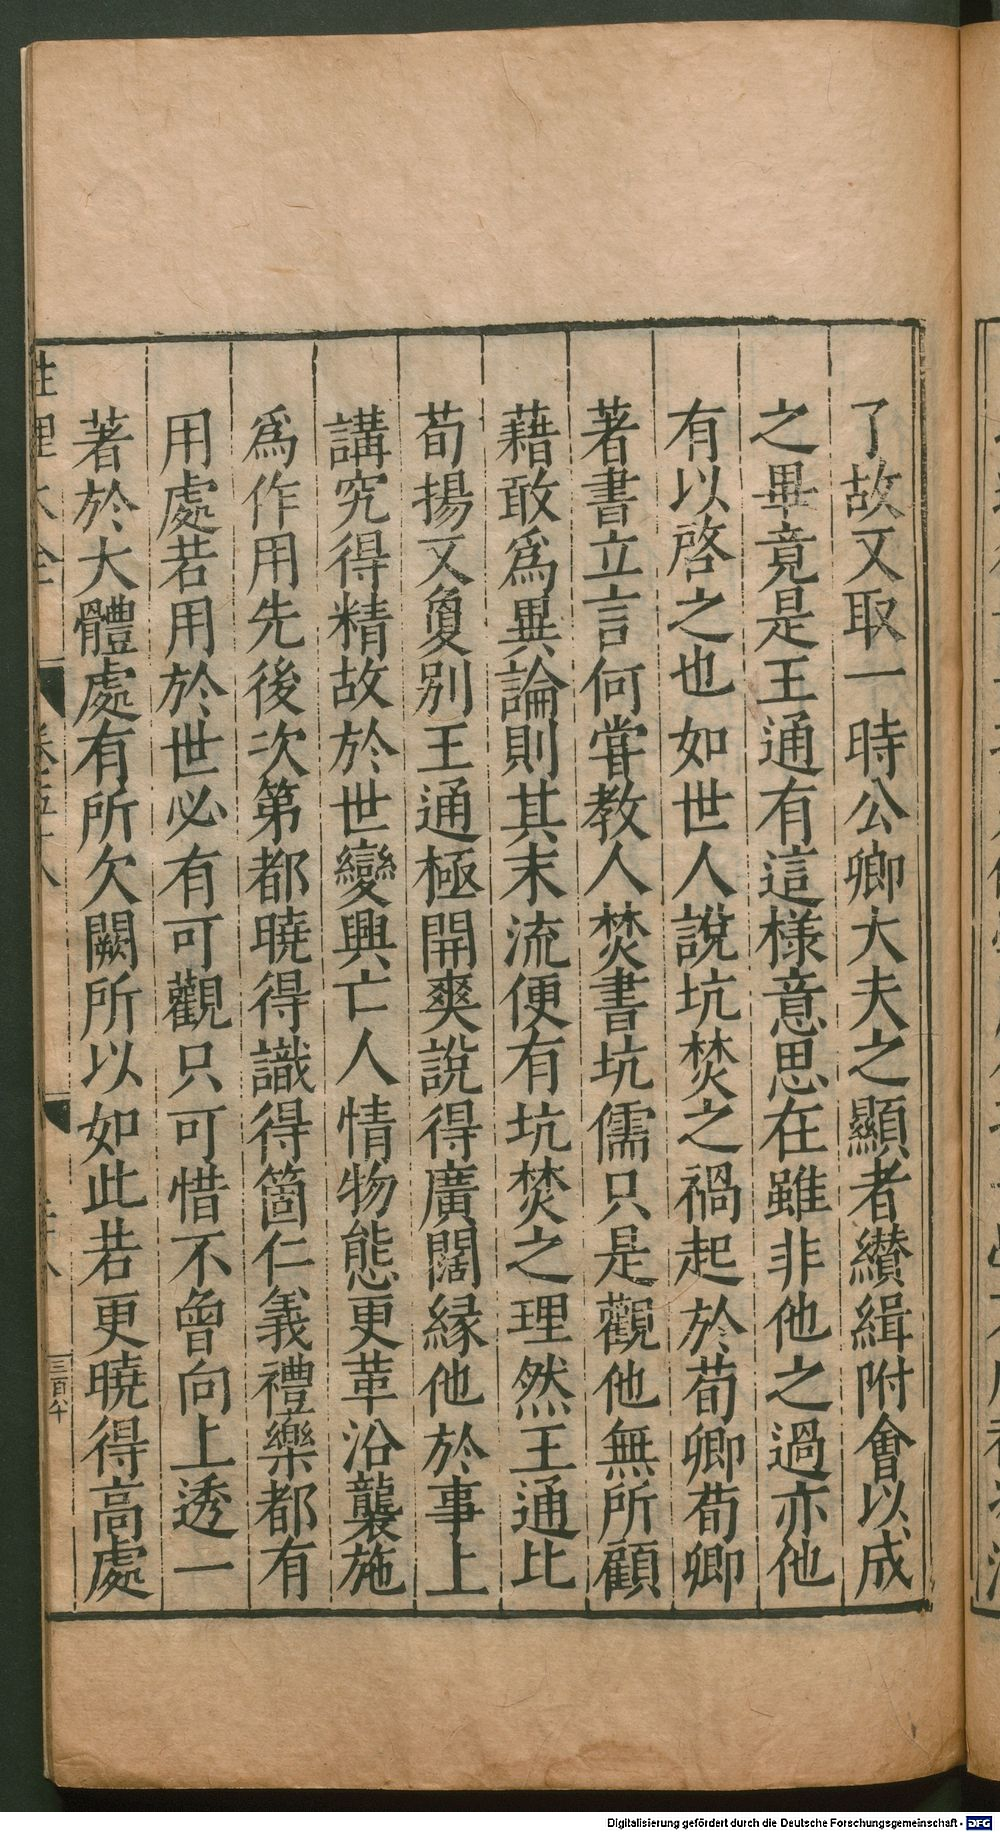 了故又取一時公卿大夫之顯者纉緝附會以成
之畢竟是王通有這樣意思在雖非他之過亦他
有以啓之也如世人說坑焚之禍起於荀卿荀卿
著書立言何嘗教人焚書坑儒只是觀他無所顧
藉敢爲異論則其末流便有坑焚之理然王通比
荀揚又敻別王通極開爽說得廣闊緣他於事上
講究得精故於世變興亡人情物態更革沿襲施
爲作用先後次第都曉得識得箇仁義禮樂都有
用處若用於世必有可觀只可惜不曾向上透一
著於大體處有所欠闕所以如此若更曉得高處
性理大全
卷五十八
三百六十
Digitalisierung gefördert durch die Deutsche Forschungsgemeinschaft - DFG